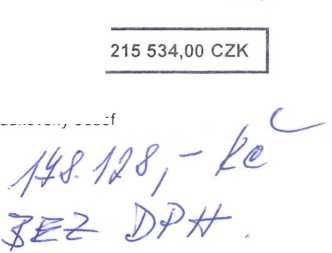 215 534,00 CZK
178.128,- Kč
BEZ DPH.